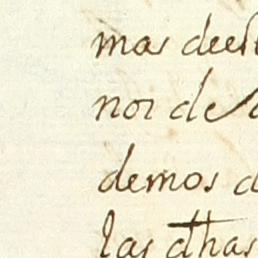 mas deel
nor de
demos d
las dhas